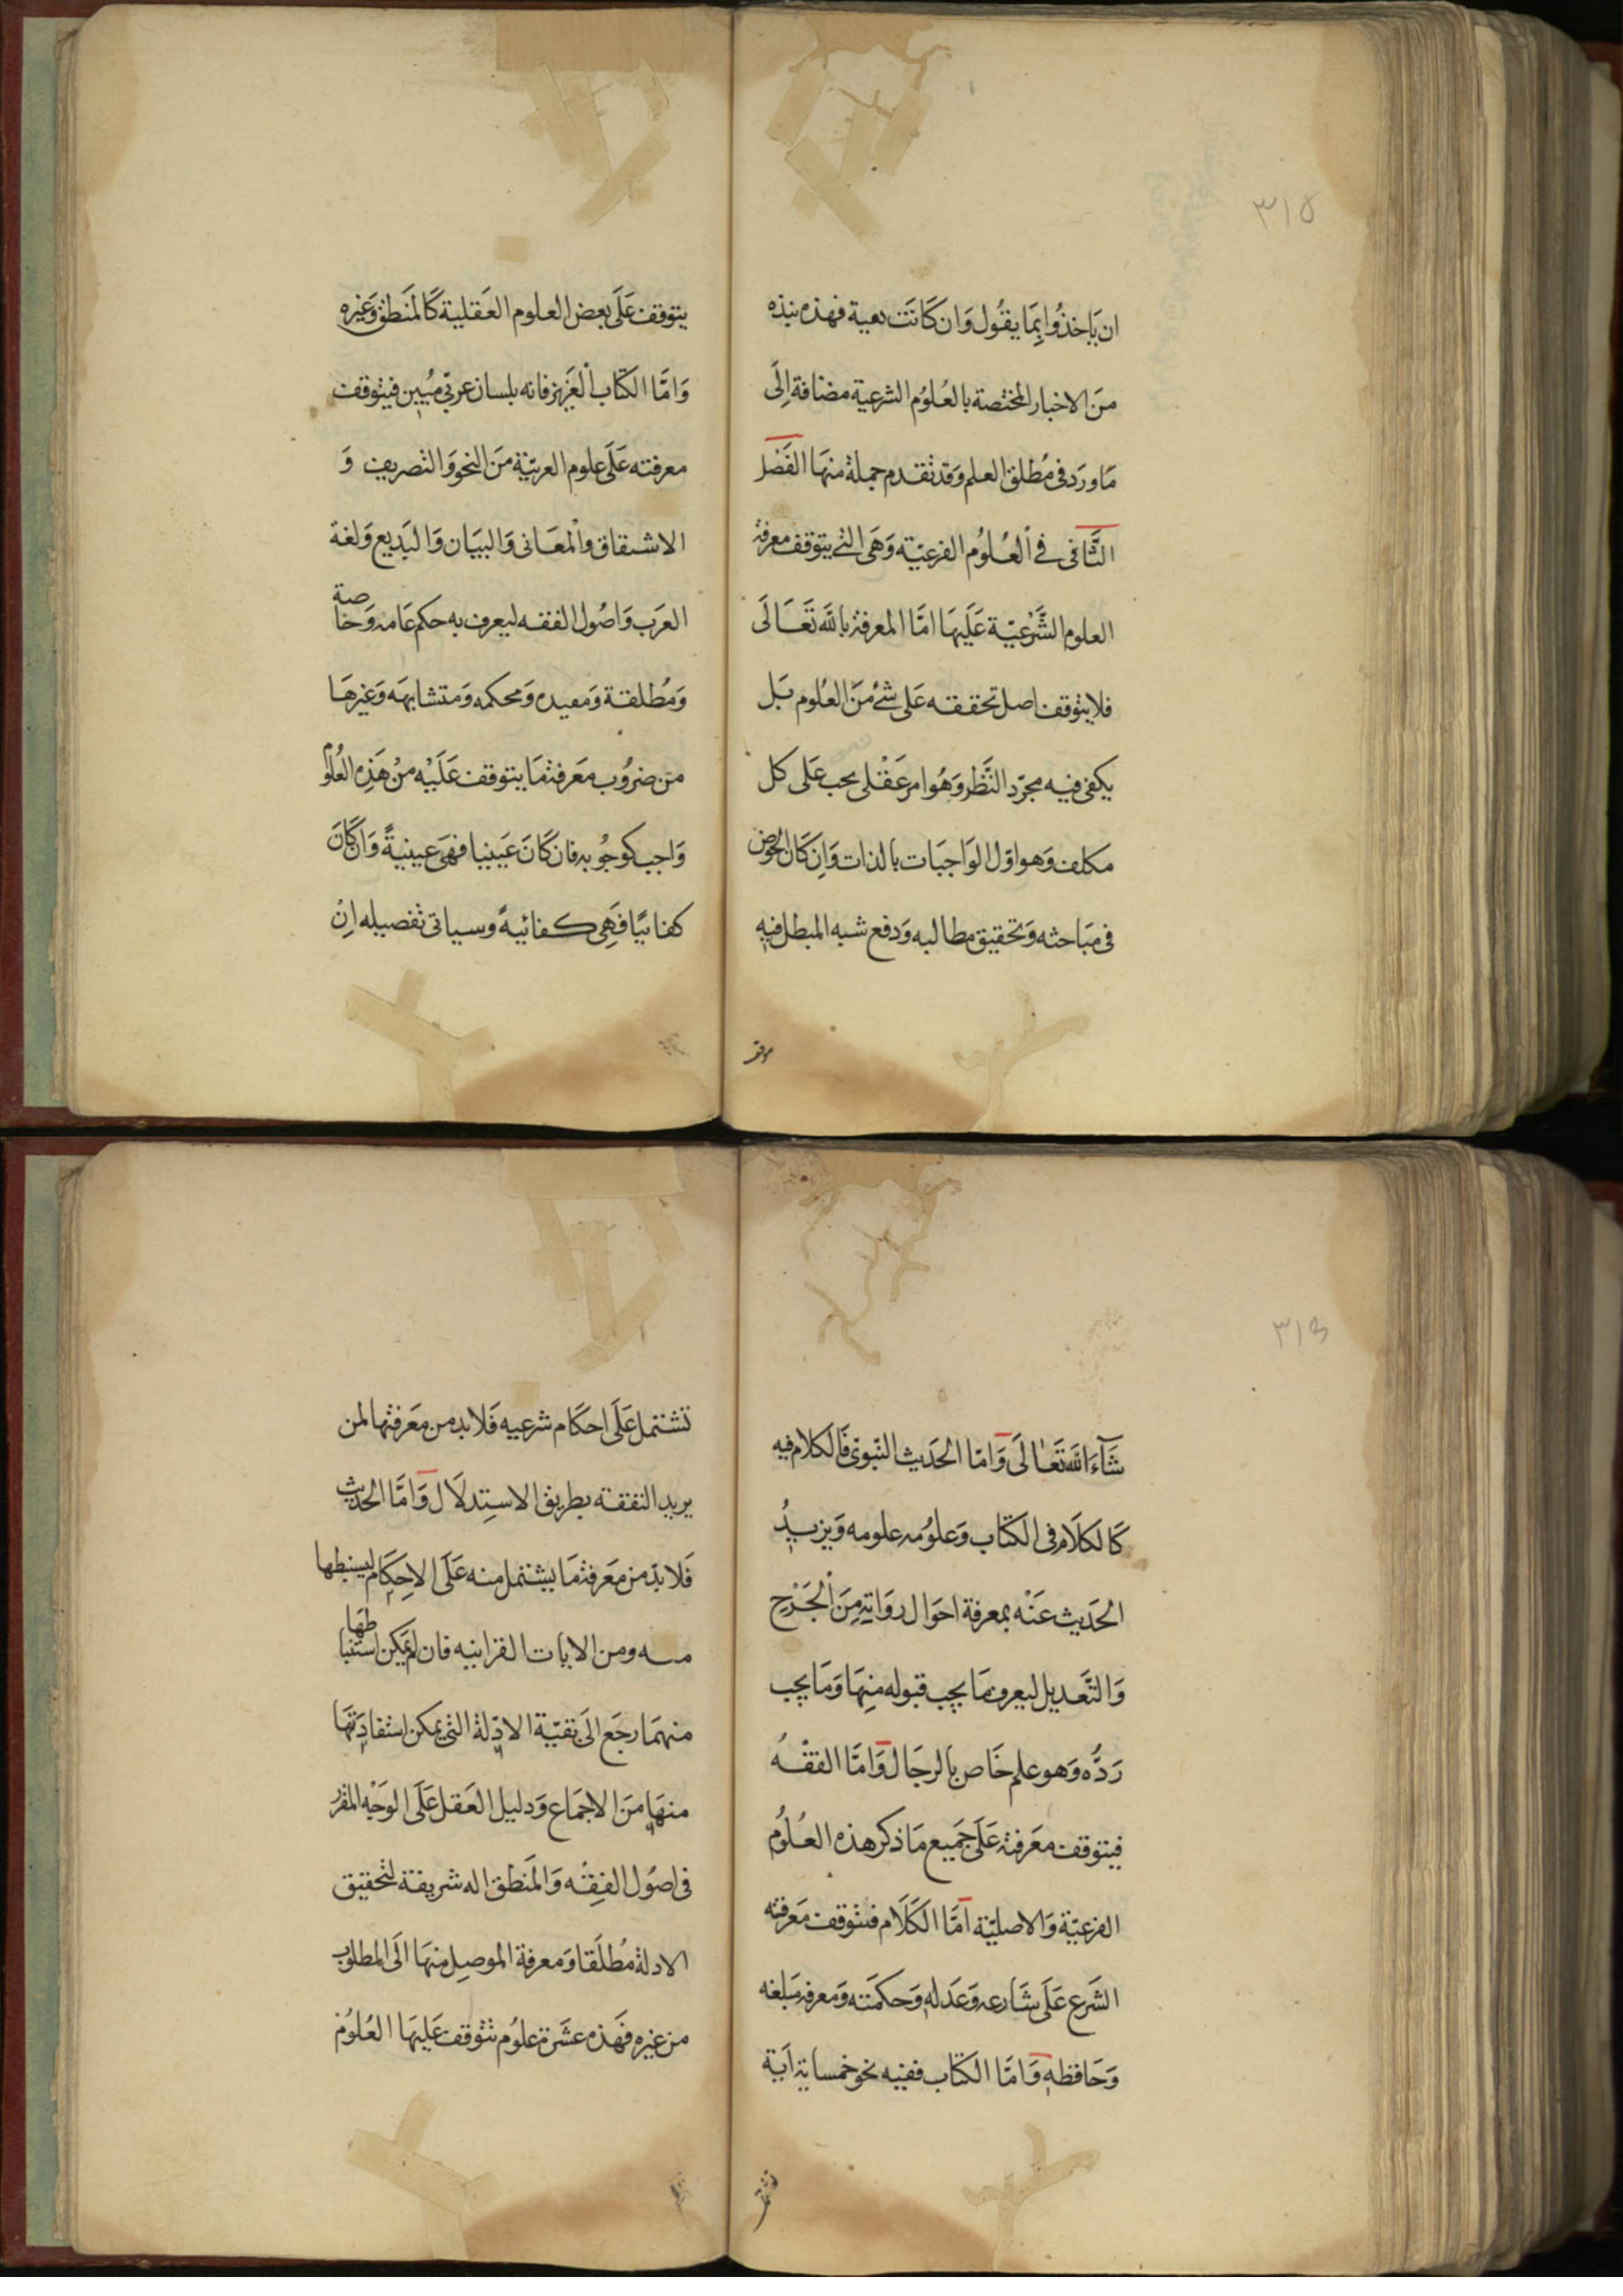 ٣١٥
ان يَاخذُوا بِمَا يقُول وَان كَانَت معية فهذه نبذه
منَ الاخبار المختصة بالعُلوُم الشرعية مضافة اِلَى
مَا ورَد فى مُطلق العلم وَقد تقدم جملة منهَا الفَصْل
الثَّانى فے الْعُلوُم الفرعيّة وَهىَ التے يتوقف معرفة
العلوم الشَّرْعيّة عَلَيهَا امَّا المعرفة باللّه تَعَالَى
فلا يتوقف اصل تحققه عَلى شئ منَ العُلوم بَل
يكفى فيه مجرّد النَّظر وَهُوَ امر عَقْلى يجب عَلى كل
مكلف وَهو اوّل الوَاجبَات بالذات وَاِن كَان الخوض
فى مبَاحثه وَتحقيق مطالبه وَدفع شبه المبطل فيه
يتوقف عَلَى بعض العلوم العَقلية كَالمَنطق وَغيره
وَامَّا الكتاب الْعَزيز فانه بلسان عربّى مُبين فيتوقف
معرفته عَلَى علوم العربيّة منَ النحو وَالتصريف وَ
الاشتقاق والْمعَانى وَالبيَان وَالبَديع وَلغة
العرَب وَاصُول الفقه ليعرف به حكم عَامه وَخاصة
وَمُطلقة وَمقيده وَمحكمه وَمتشابهَه وَغيرهَا
من ضروُب مَعرفة مَا يتوقف عَلَيْه منْ هَذِه العُلُوْم
وَاجب كوجُوبه فان كَانَ عَينيا فهىَ عينيةً وَان كَانَ
كفائيًا فَهِى كفائيةً وسياتى تفصيله اِنْ
٣١٦
شَآءَ اللّه تَعَالَى وَامّا الحَديث النّبوىّ فَالكلام فيه
كَالكلَام فى الكتاب وَعلوُمه علومه وَيزيدُ
الحَديث عَنْه بمعرفة احوَال روَاته مِنَ الْجَرْحِ
وَالتَّعديل ليعرف مَا يجب قبوله منِهَا وَمَا يجب
رَدُّه وَهو علم خَاص بالرجَال وَامَّا الفقْهُ
فيتوقف معَرفته عَلَى جَميع مَا ذكر هذه العُلُوم
الفرعيّة وَالاصليّة امَّا الكَلَام فيتوقف مَعرفته
الشَرع عَلَى شَارعه وَعَدله وَحكمَته وَمعرفه مَبلغه
وَحَافظه وَامَّا الكتَاب ففيه نحو خمسماية اَية
تشتمل عَلَى احكَام شرعيه فَلا بد من مَعرفتها لمن
يريد التفقه بطريق الاستِدلَال وَامَّا الحَديث
فَلا بدّ من مَعرفة مَا يشتمل منه عَلَى الاحِكَام ليسنبطها
منه ومن الايات القرانيه فان لم يمكن استنباطهَا
منهمَا رجَع الَى بقيّة الادّلة التى يمكن استفادَتهَا
منهَا منَ الاجمَاع وَدليل العَقل عَلَى الوَجْه المقرر
فى اصُول الفِقْه وَالمَنطق اله شريفة لتحقيق
الادلة مُطلَقا وَمعرفة الموصِل منهَا الَى المطلوب
من غيره فَهَذه عشَرة علوُم تتوقف عَليهَا العُلوُم